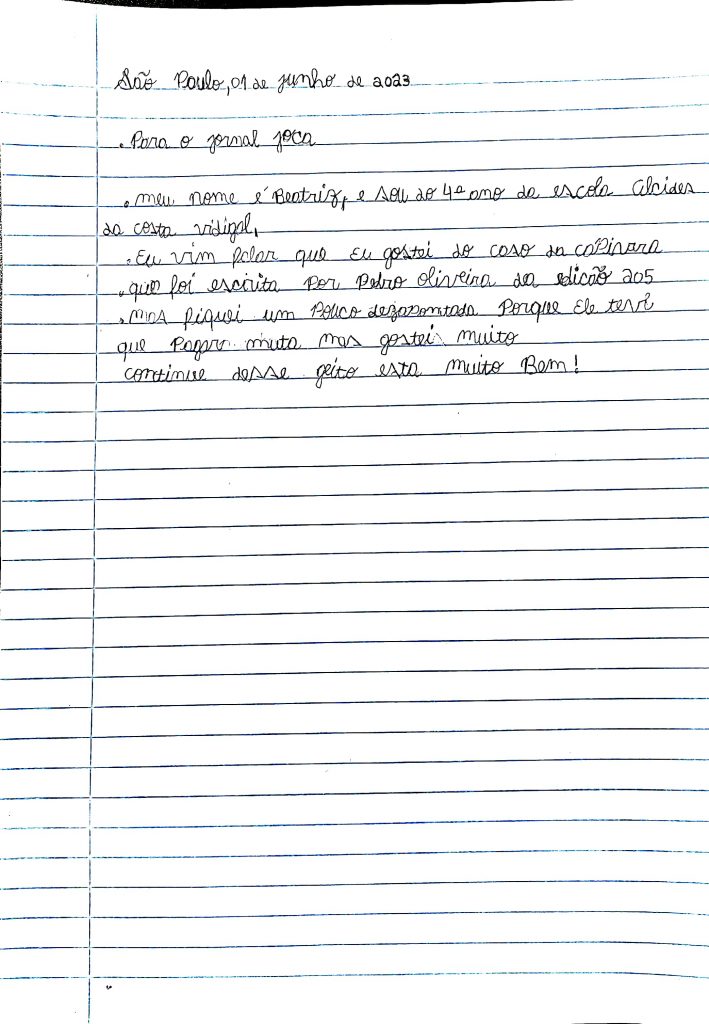 São Paulo, 01 de junho de 2023
. Para o jornal joca
. meu nome é Beatriz, e sou do 4º ano da escola Alcides
da costa vidigal,
. Eu vim falar que Eu gostei do caso da caPivara
. que foi escrita Por Pedro oliveira da edicão 205
. mas fiquei um Pouco dezapontada Porque Ele teve
que Pagar muta mas gostei muito
continue desse geito esta muito Bem!